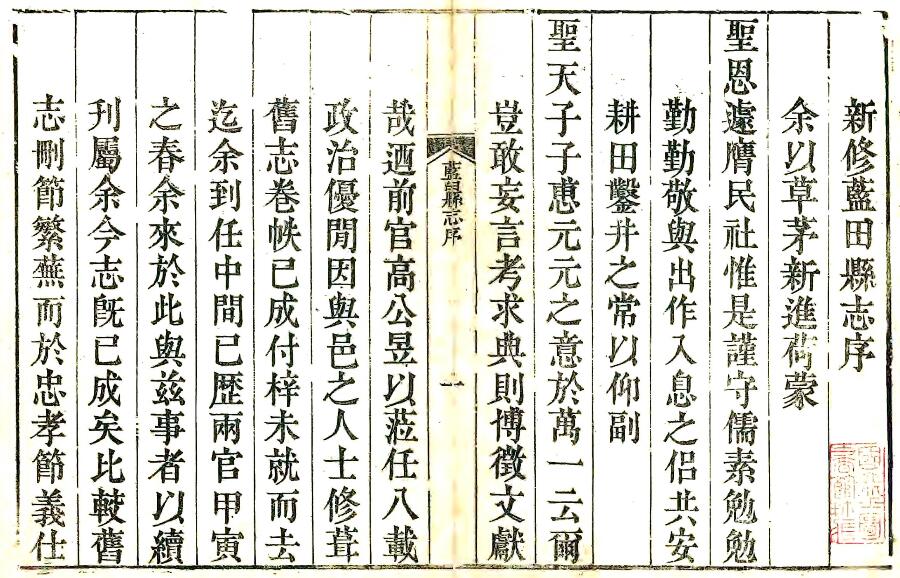 新修藍田縣志序
余以草茅新進荷蒙
聖恩遠膺民社惟是謹守儒素勉勉
勤勤敬與出作入息之侶共安
耕田鑿井之常以仰副
聖天子子惠元元之意於萬一云爾
豈敢妄言考求典則博徵文獻
藍田縣志序
一
哉迺前官高公昱以蒞任八載
政治優閒因與邑之人士修葺
舊志卷帙已成付梓未就而去
迄余到任中間已歷兩官甲寅
之春余來於此與茲事者以續
刋屬余今志旣已成矣比較舊
志刪節繁蕪而於忠孝節義仕